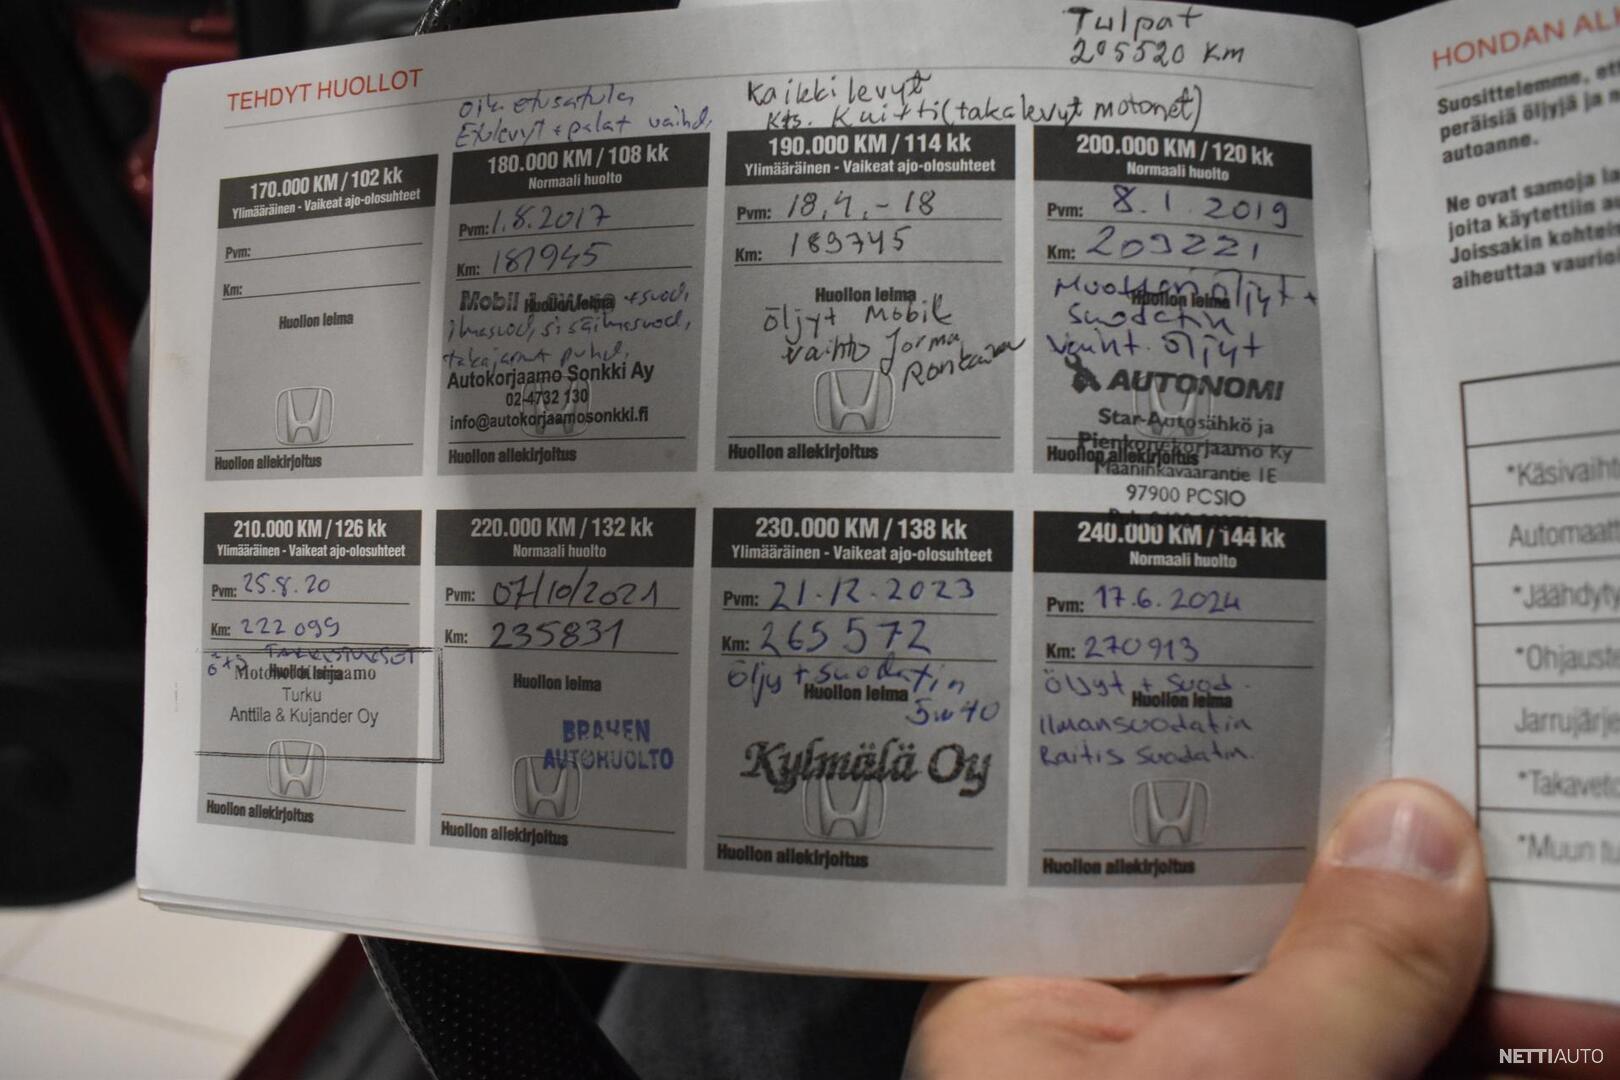 Tulpat
205520 Km
TEHDYT HUOLLOT
oik. etusatula
Etulevyt + palat vaihd.
Kaikki levyt
kts. Kuitti (takalevyt motonet)
170.000 KM / 102 kk
Ylimääräinen - Vaikeat ajo-olosuhteet
Pvm:
Km:
Huollon leima
Huollon allekirjoitus
180.000 KM / 108 kk
Normaali huolto
Pvm: 1.8.2017
Km: 181945
Mobil
Huollon leima
+ suod,
ilmasuod, sisäilmasuod,
takajarrut puhd,
Autokorjaamo Sonkki Ay
02-4732 130
info@autokorjaamosonkki.fi
Huollon allekirjoitus
190.000 KM / 114 kk
Ylimääräinen - Vaikeat ajo-olosuhteet
Pvm: 18.4.-18
Km: 189745
Huollon leima
öljyt Mobil
vaihto Jorma
Huollon allekirjoitus
200.000 KM / 120 kk
Normaali huolto
Pvm: 8.1.2019
Km: 209221
Moottoriöljyt +
Huollon leima
Suodatin
Vaiht. öljyt
AUTONOMI
Star-Autosähkö ja
Pienkonekorjaamo Ky
Huollon allekirjoitus
Maaninkavaarantie 1E
97900 POSIO
210.000 KM / 126 kk
Ylimääräinen - Vaikeat ajo-olosuhteet
Pvm: 25.8.20
Km: 222099
TARKISTUKSET
Huollon leima
Turku
Anttila & Kujander Oy
Huollon allekirjoitus
220.000 KM / 132 kk
Normaali huolto
Pvm: 07/10/2021
Km: 235831
Huollon leima
BRAHEN
AUTOHUOLTO
Huollon allekirjoitus
230.000 KM / 138 kk
Ylimääräinen - Vaikeat ajo-olosuhteet
Pvm: 21.12.2023
Km: 265572
Öljy + suodatin
Huollon leima
5w40
Kylmälä Oy
Huollon allekirjoitus
240.000 KM / 144 kk
Normaali huolto
Pvm: 17.6.2024
Km: 270913
Öljyt + suod.
Huollon leima
Ilmansuodatin
Raitis suodatin.
Huollon allekirjoitus
HONDAN AL
Suosittelemme, ett
peräisiä öljyjä ja n
autoanne.
Ne ovat samoja la
joita käytettiin au
Joissakin kohtein
aiheuttaa vaurioi
*Käsivaiht
Automaatt
*Jäähdyty
*Ohjauste
Jarrujärje
*Takaveto
*Muun tu
NETTIAUTO